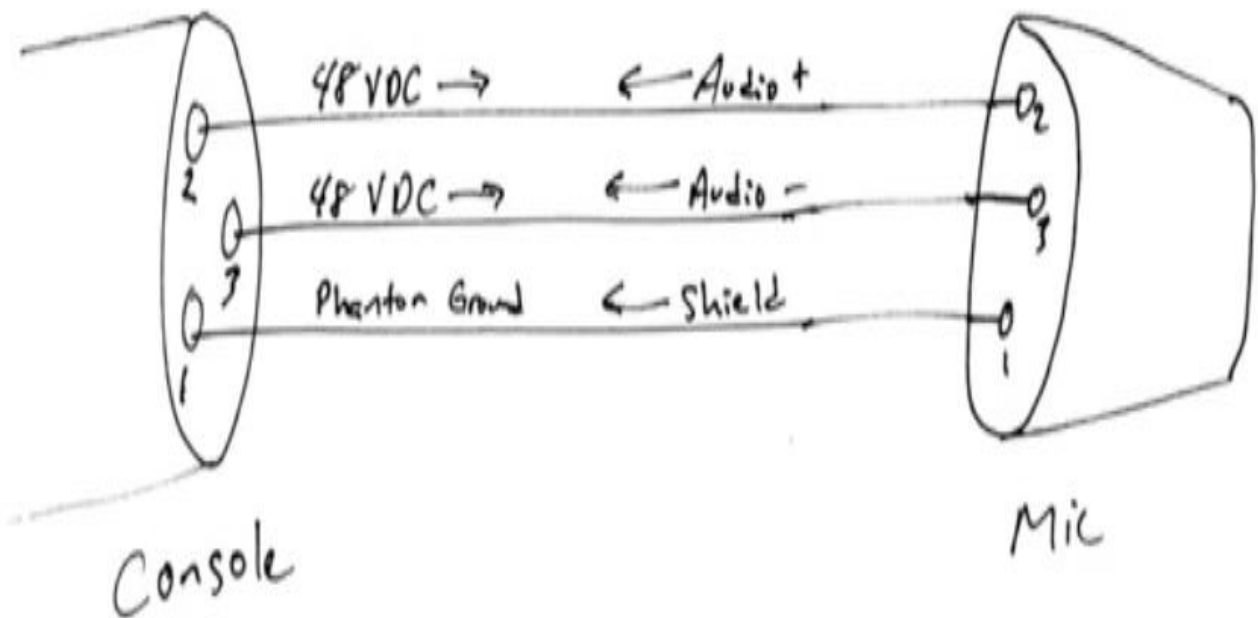 48 VDC → ← Audio +
2 2
48 VDC → ← Audio -
3 3
Phantom Ground ← Shield
1 1
Console
Mic